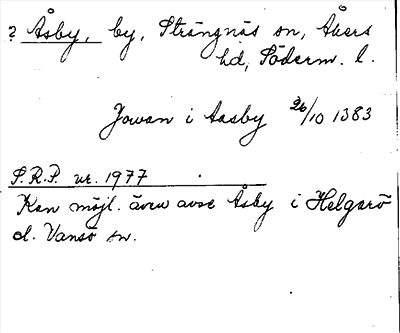 ? Åsby, by, Strängnäs sn, Åkers
hd, Söderm. l.
Jowan i Aasby 26/10 1383
S.R.P. nr. 1977
Kan möjl. även avse Åsby i Helgarö
el. Vansö sn.